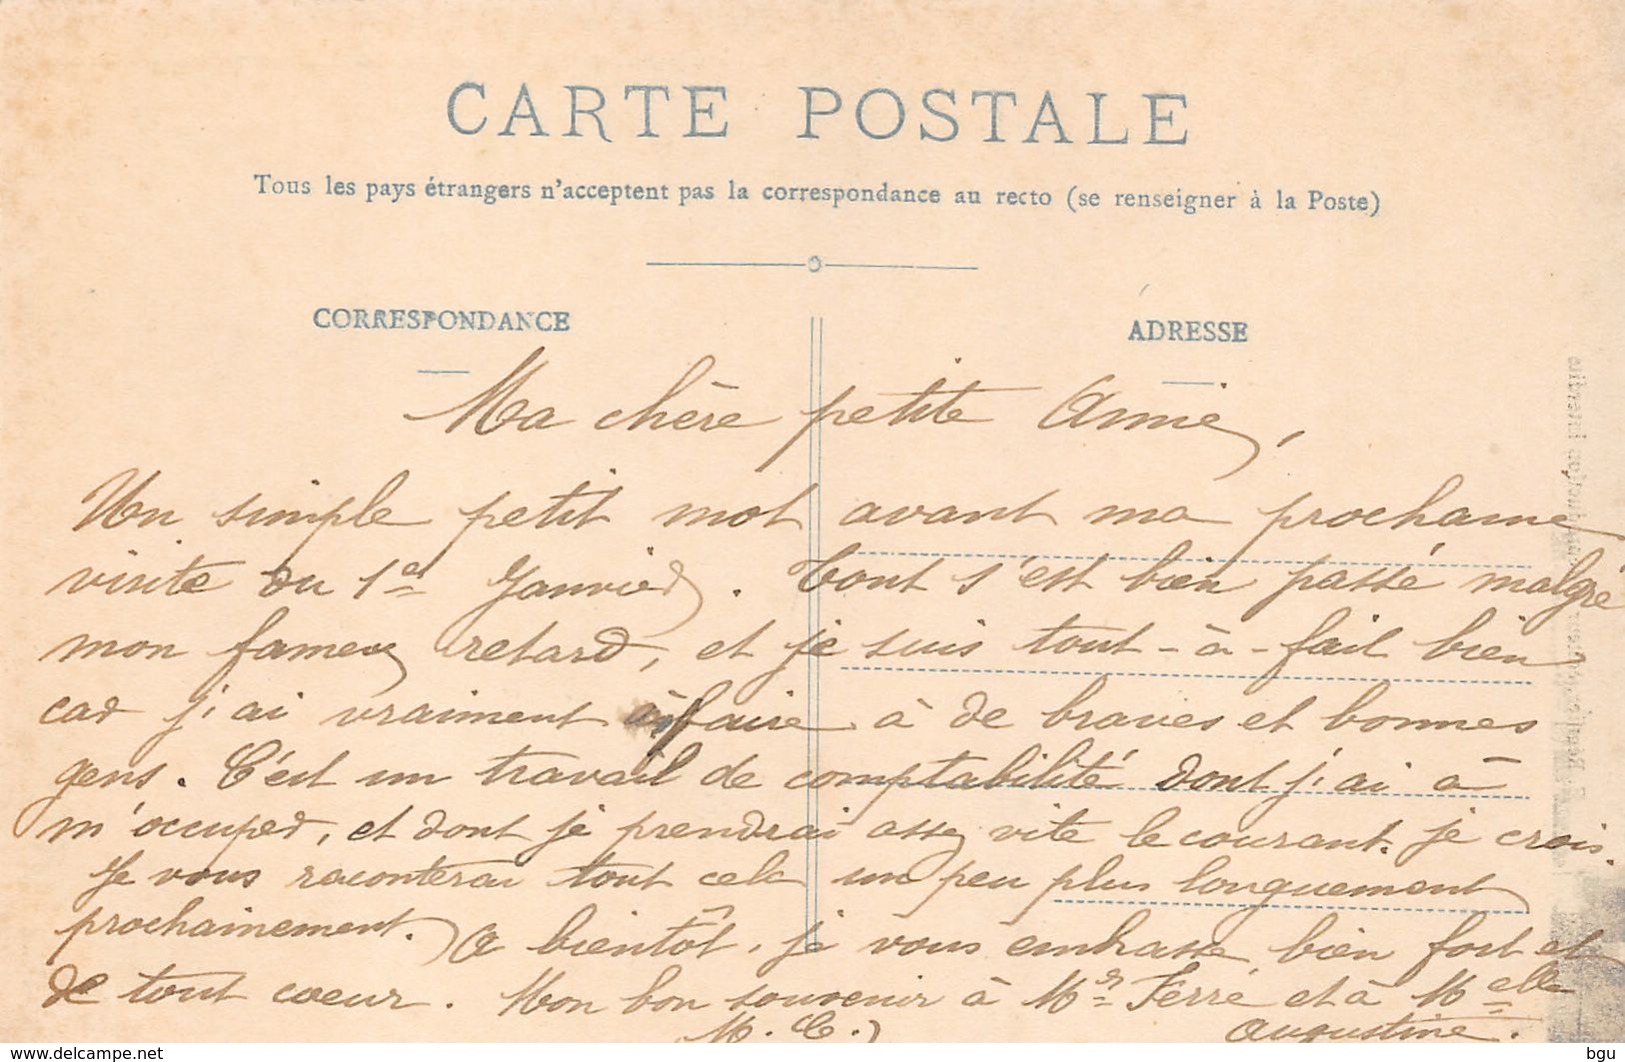 CARTE POSTALE
Tous les pays étrangers n'acceptent pas la correspondance au recto (se renseigner à la Poste)
CORRESPONDANCE
ADRESSE
Ma chère petite Amie,
Un simple petit mot avant ma prochaine
visite du 1er Janvier. Tout s'est bien passé malgré
mon fameux retard, et je suis tout-à-fait bien
car j'ai vraiment à faire à de braves et bonnes
gens. C'est un travail de comptabilité dont j'ai à
m'occuper, et dont je prendrai assez vite le courant. je crois.
Je vous raconterai tout cela un peu plus longuement
prochainement. A bientôt, je vous embrasse bien fort et
de tout coeur. Mon bon souvenir à Mr Ferré et à Melle
M. C.) Augustine.
www.delcampe.net
bgu